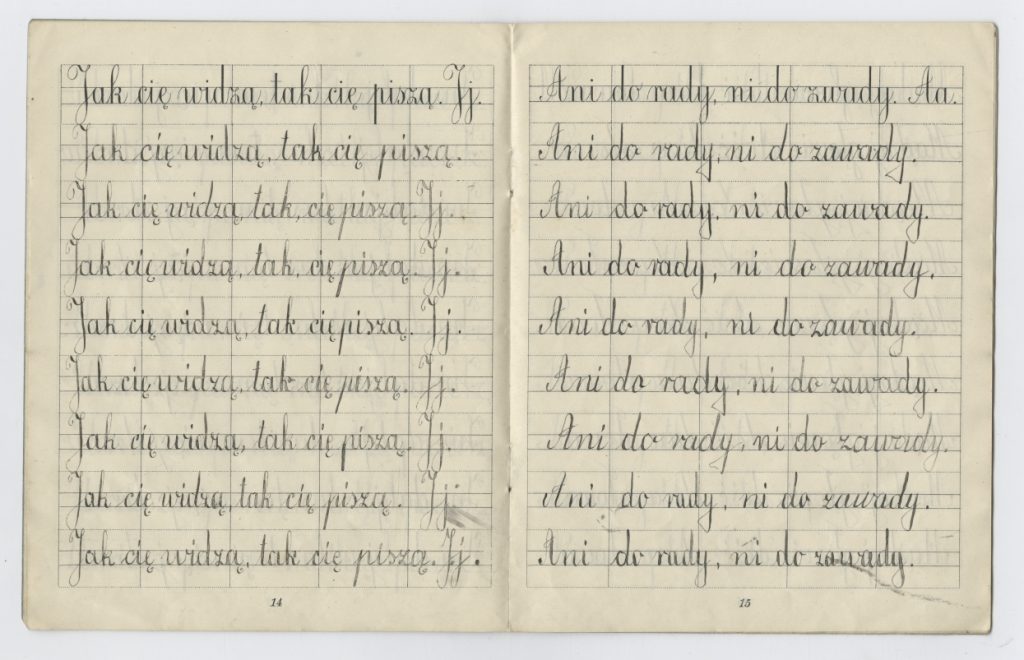 Jak cię widzą, tak cię piszą. Jj.
Jak cię widzą, tak cię piszą.
Jak cię widzą, tak, cię piszą. Jj.
Jak cię widzą, tak, cię piszą. Jj.
Jak cię widzą, tak cię piszą. Jj.
Jak cię widzą, tak cię piszą. Jj.
Jak cię widzą, tak cię piszą. Jj.
Jak cię widzą, tak cię piszą. Jj.
Jak cię widzą, tak cię piszą. Jj.
14
Ani do rady, ni do zwady. Aa.
Ani do rady, ni do zawady.
Ani do rady, ni do zawady.
Ani do rady, ni do zawady.
Ani do rady, ni do zawady.
Ani do rady, ni do zawady.
Ani do rady, ni do zawady.
Ani do rady, ni do zawady.
Ani do rady, ni do zawady.
15